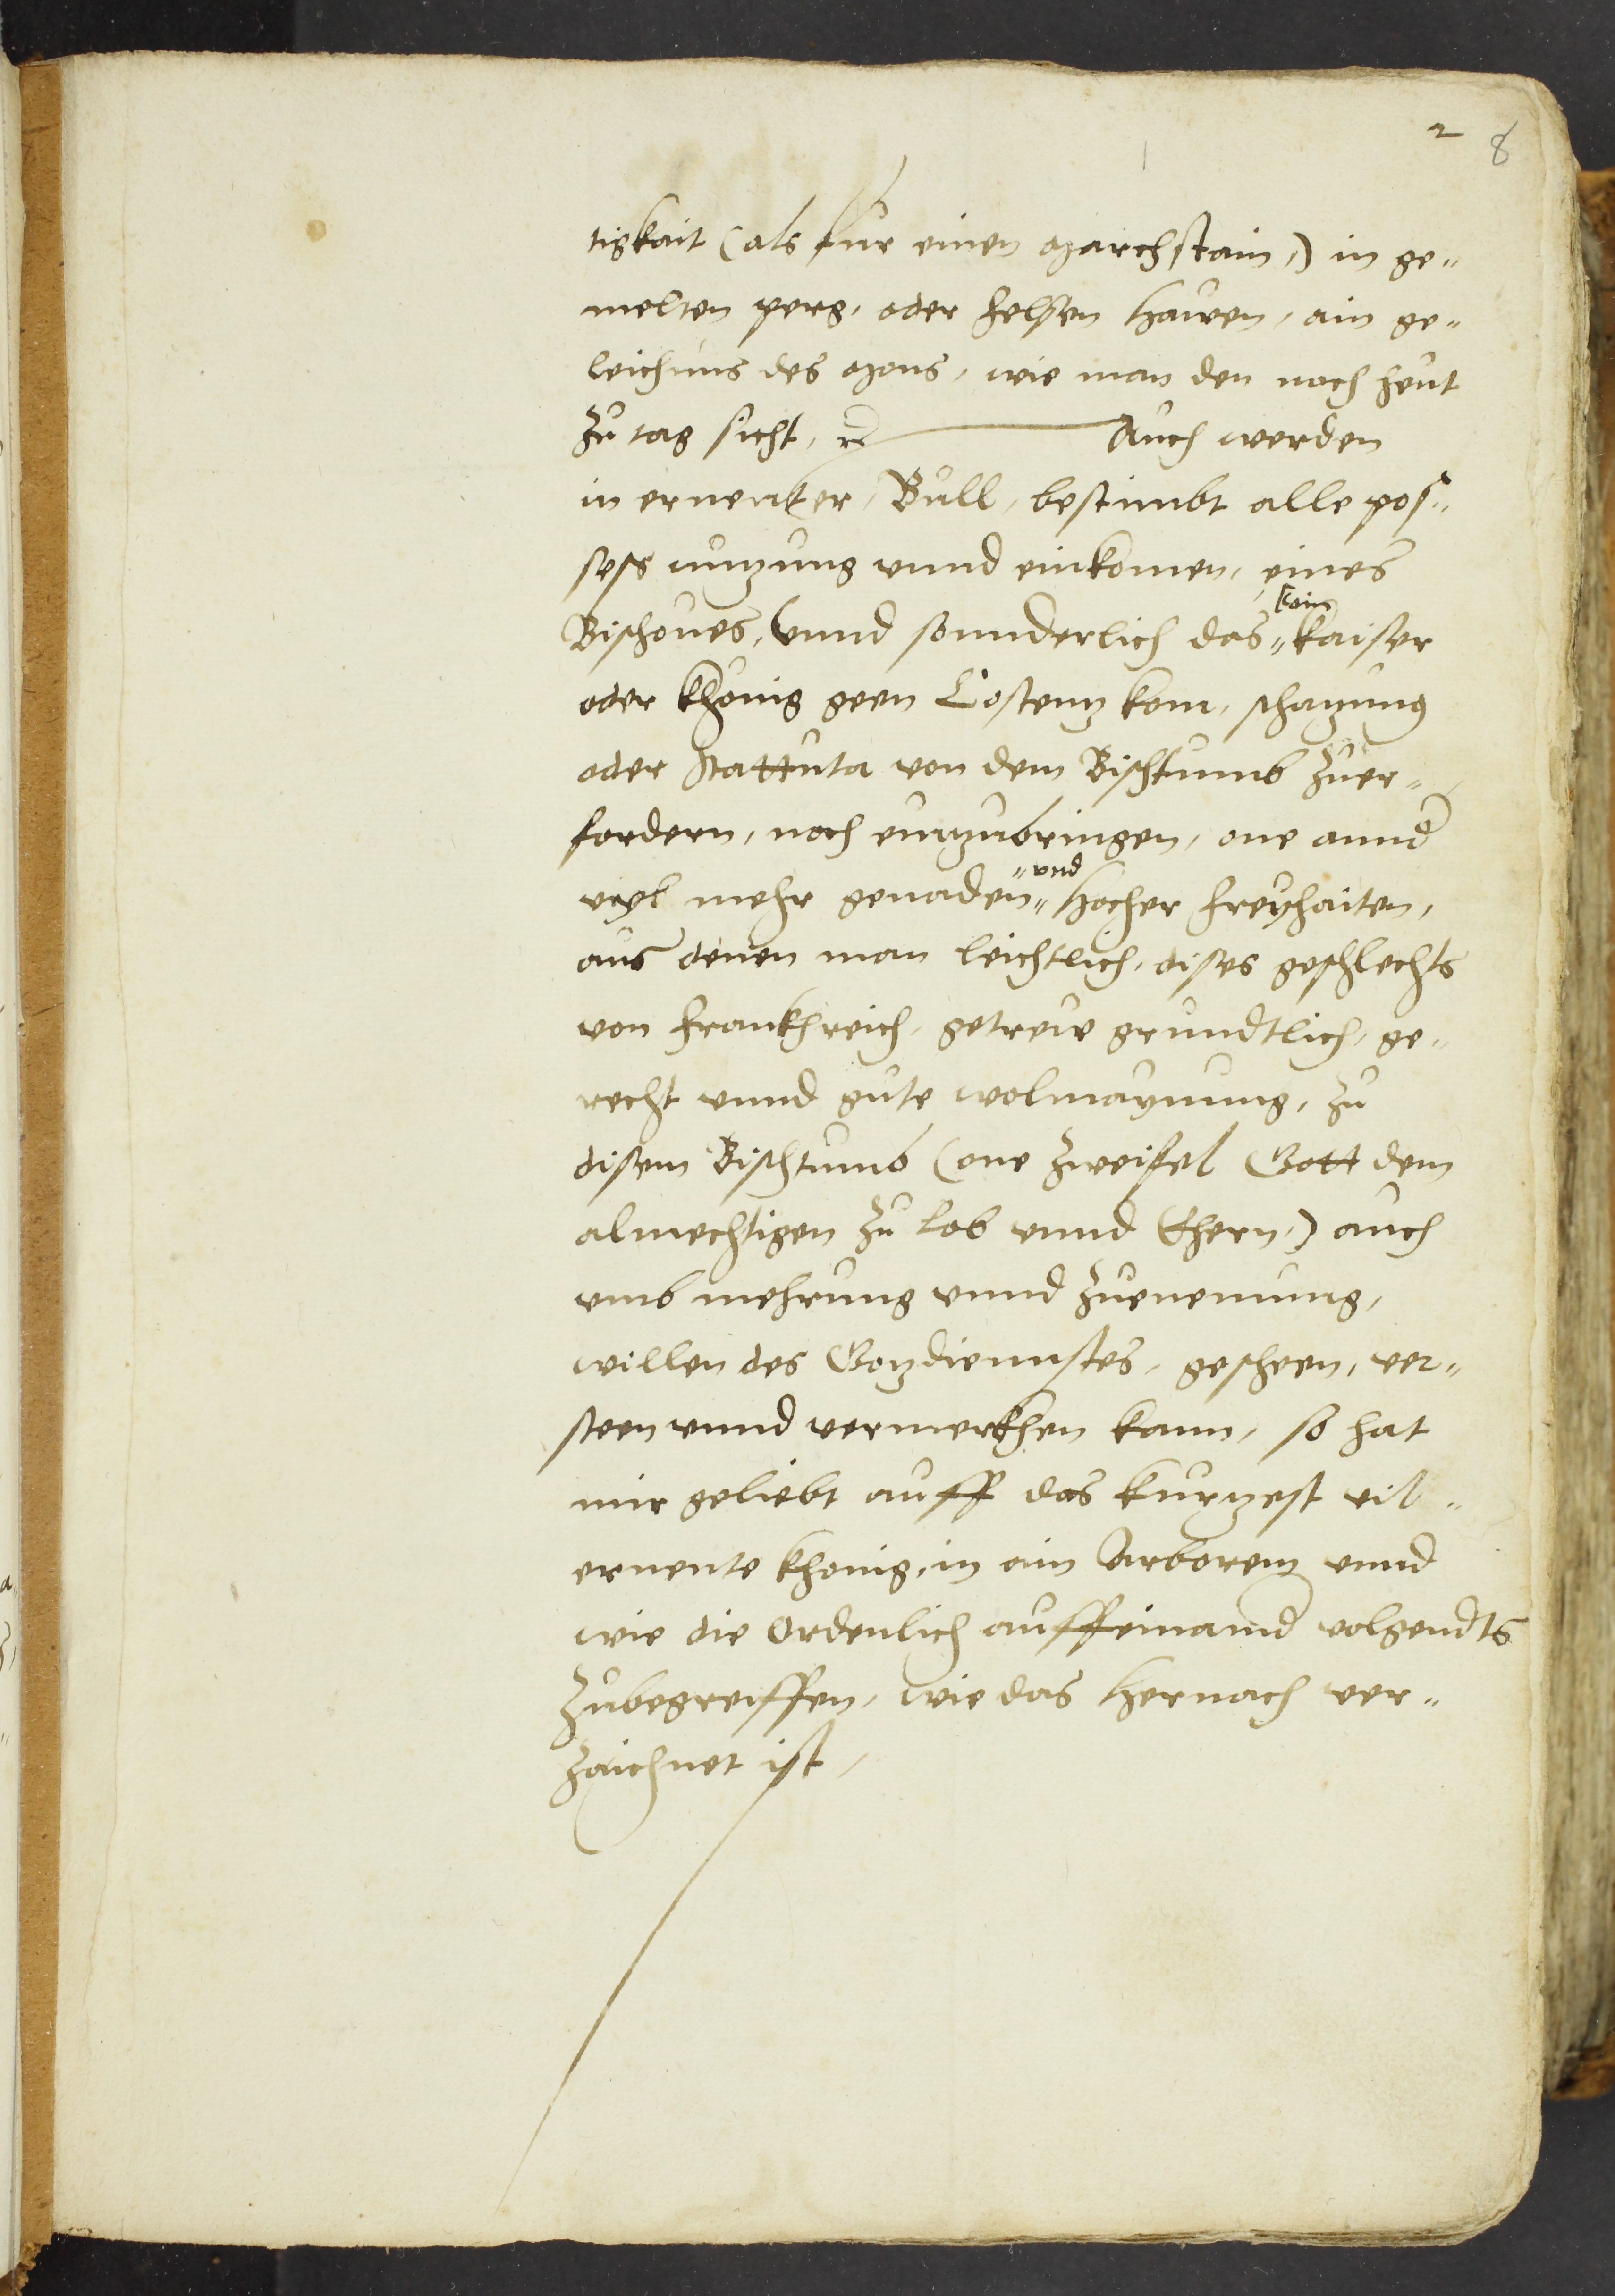 2 8
tigkait (als fur einen Marchstain,) in ge„
melten perg, oder felsen hawen, ain ge„
leichnus des Mons, wie man den noch heut
zu tag sicht, ⁊c Auch werden
in ernenter, Bull, bestimbt alle pos„
sess nutzung vnnd einkomen, eines
Bischoues, vnnd sonnderlich das „kain„ kaiser
oder khönig geen Costentz kom, schatzung
oder stattuta von dem Bischtumb zuer„
fordern, noch einzubringen, one annd
vyl mehr genaden „vnd„ hocher freyhaiten,
aus denen man leichtlich, dises geschlechts
von Frankhreich, getreue grundtlich, ge„
recht vnnd gute wolmaynung, zu
disem Bischtumb (one zweifel Gott dem
almechtigen zu lob vnnd Ehern,) auch
vmb mehrung vnnd zuenemung,
willen des Gotzdiennstes, gescheen, ver„
steen vnnd vermerkhen kann, so hat
mir geliebt auff das kurtzest vil„
ernente khönig, in ain Arborem vnnd
wie die Ordenlich auffeinannd volgendts
zubegreiffen, wie das hernach ver„
zaichnet ist,